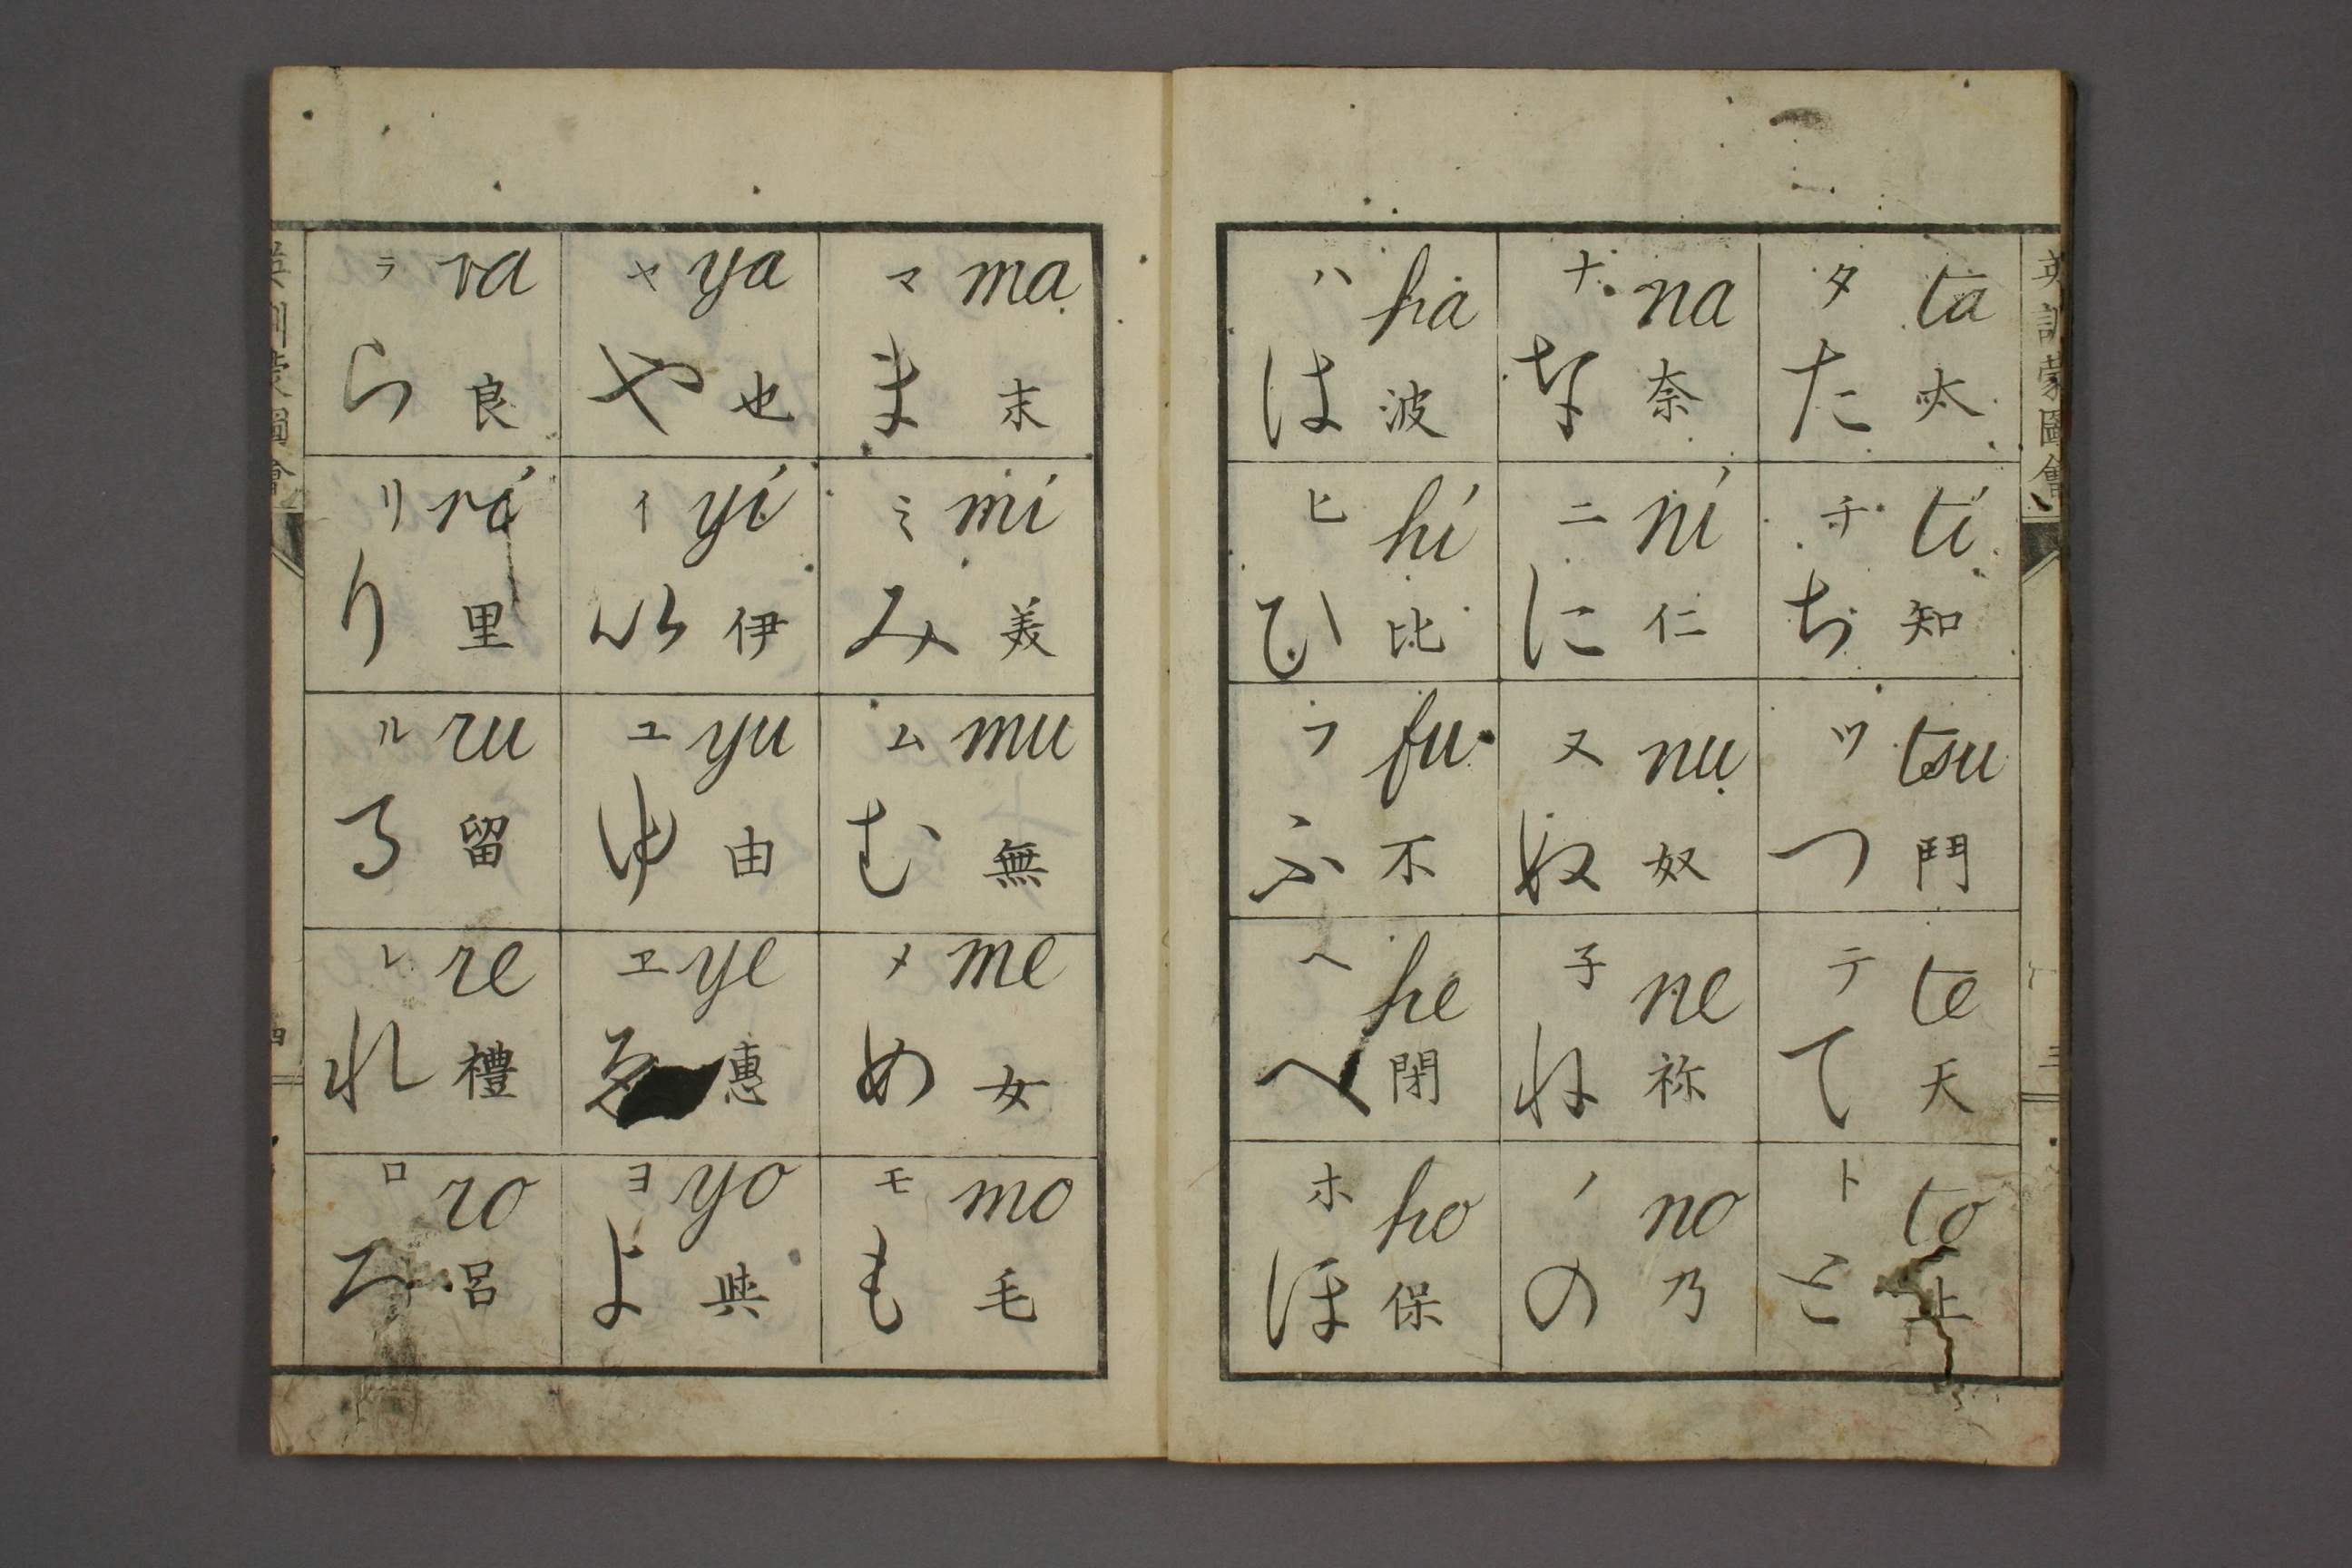 英訓蒙圖會
三
ta タ
太 た
ti チ
知 ち
tsu ツ
鬥 つ
te テ
天 て
to ト
止 と
na ナ
奈 な
ni ニ
仁 に
nu ヌ
奴 ぬ
ne 子
祢 ね
no ノ
乃 の
ha ハ
波 は
hi ヒ
比 ひ
fu フ
不 ふ
he ヘ
閉 へ
ho ホ
保 ほ
ma マ
末 ま
mi ミ
美 み
mu ム
無 む
me メ
女 め
mo モ
毛 も
ya ヤ
也 や
yi イ
伊 い
yu ユ
由 ゆ
ye ヱ
惠 ゑ
yo ヨ
與 よ
ra ラ
良 ら
ri リ
里 り
ru ル
留 る
re レ
禮 れ
ro ロ
呂 ろ
英訓蒙圖會
四